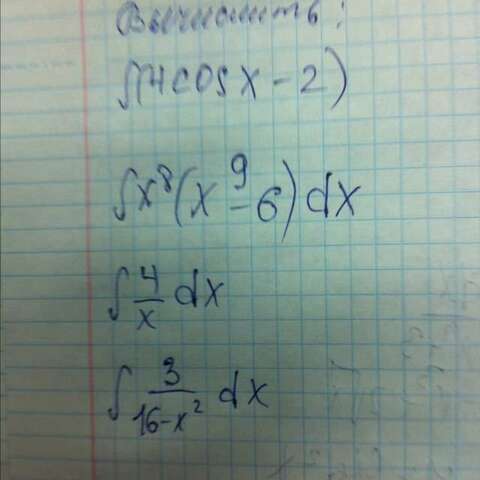 Вычислить:
∫(4cosx-2)
∫x⁸(x⁹-6)dx
∫4/x dx
∫3/(16-x²) dx